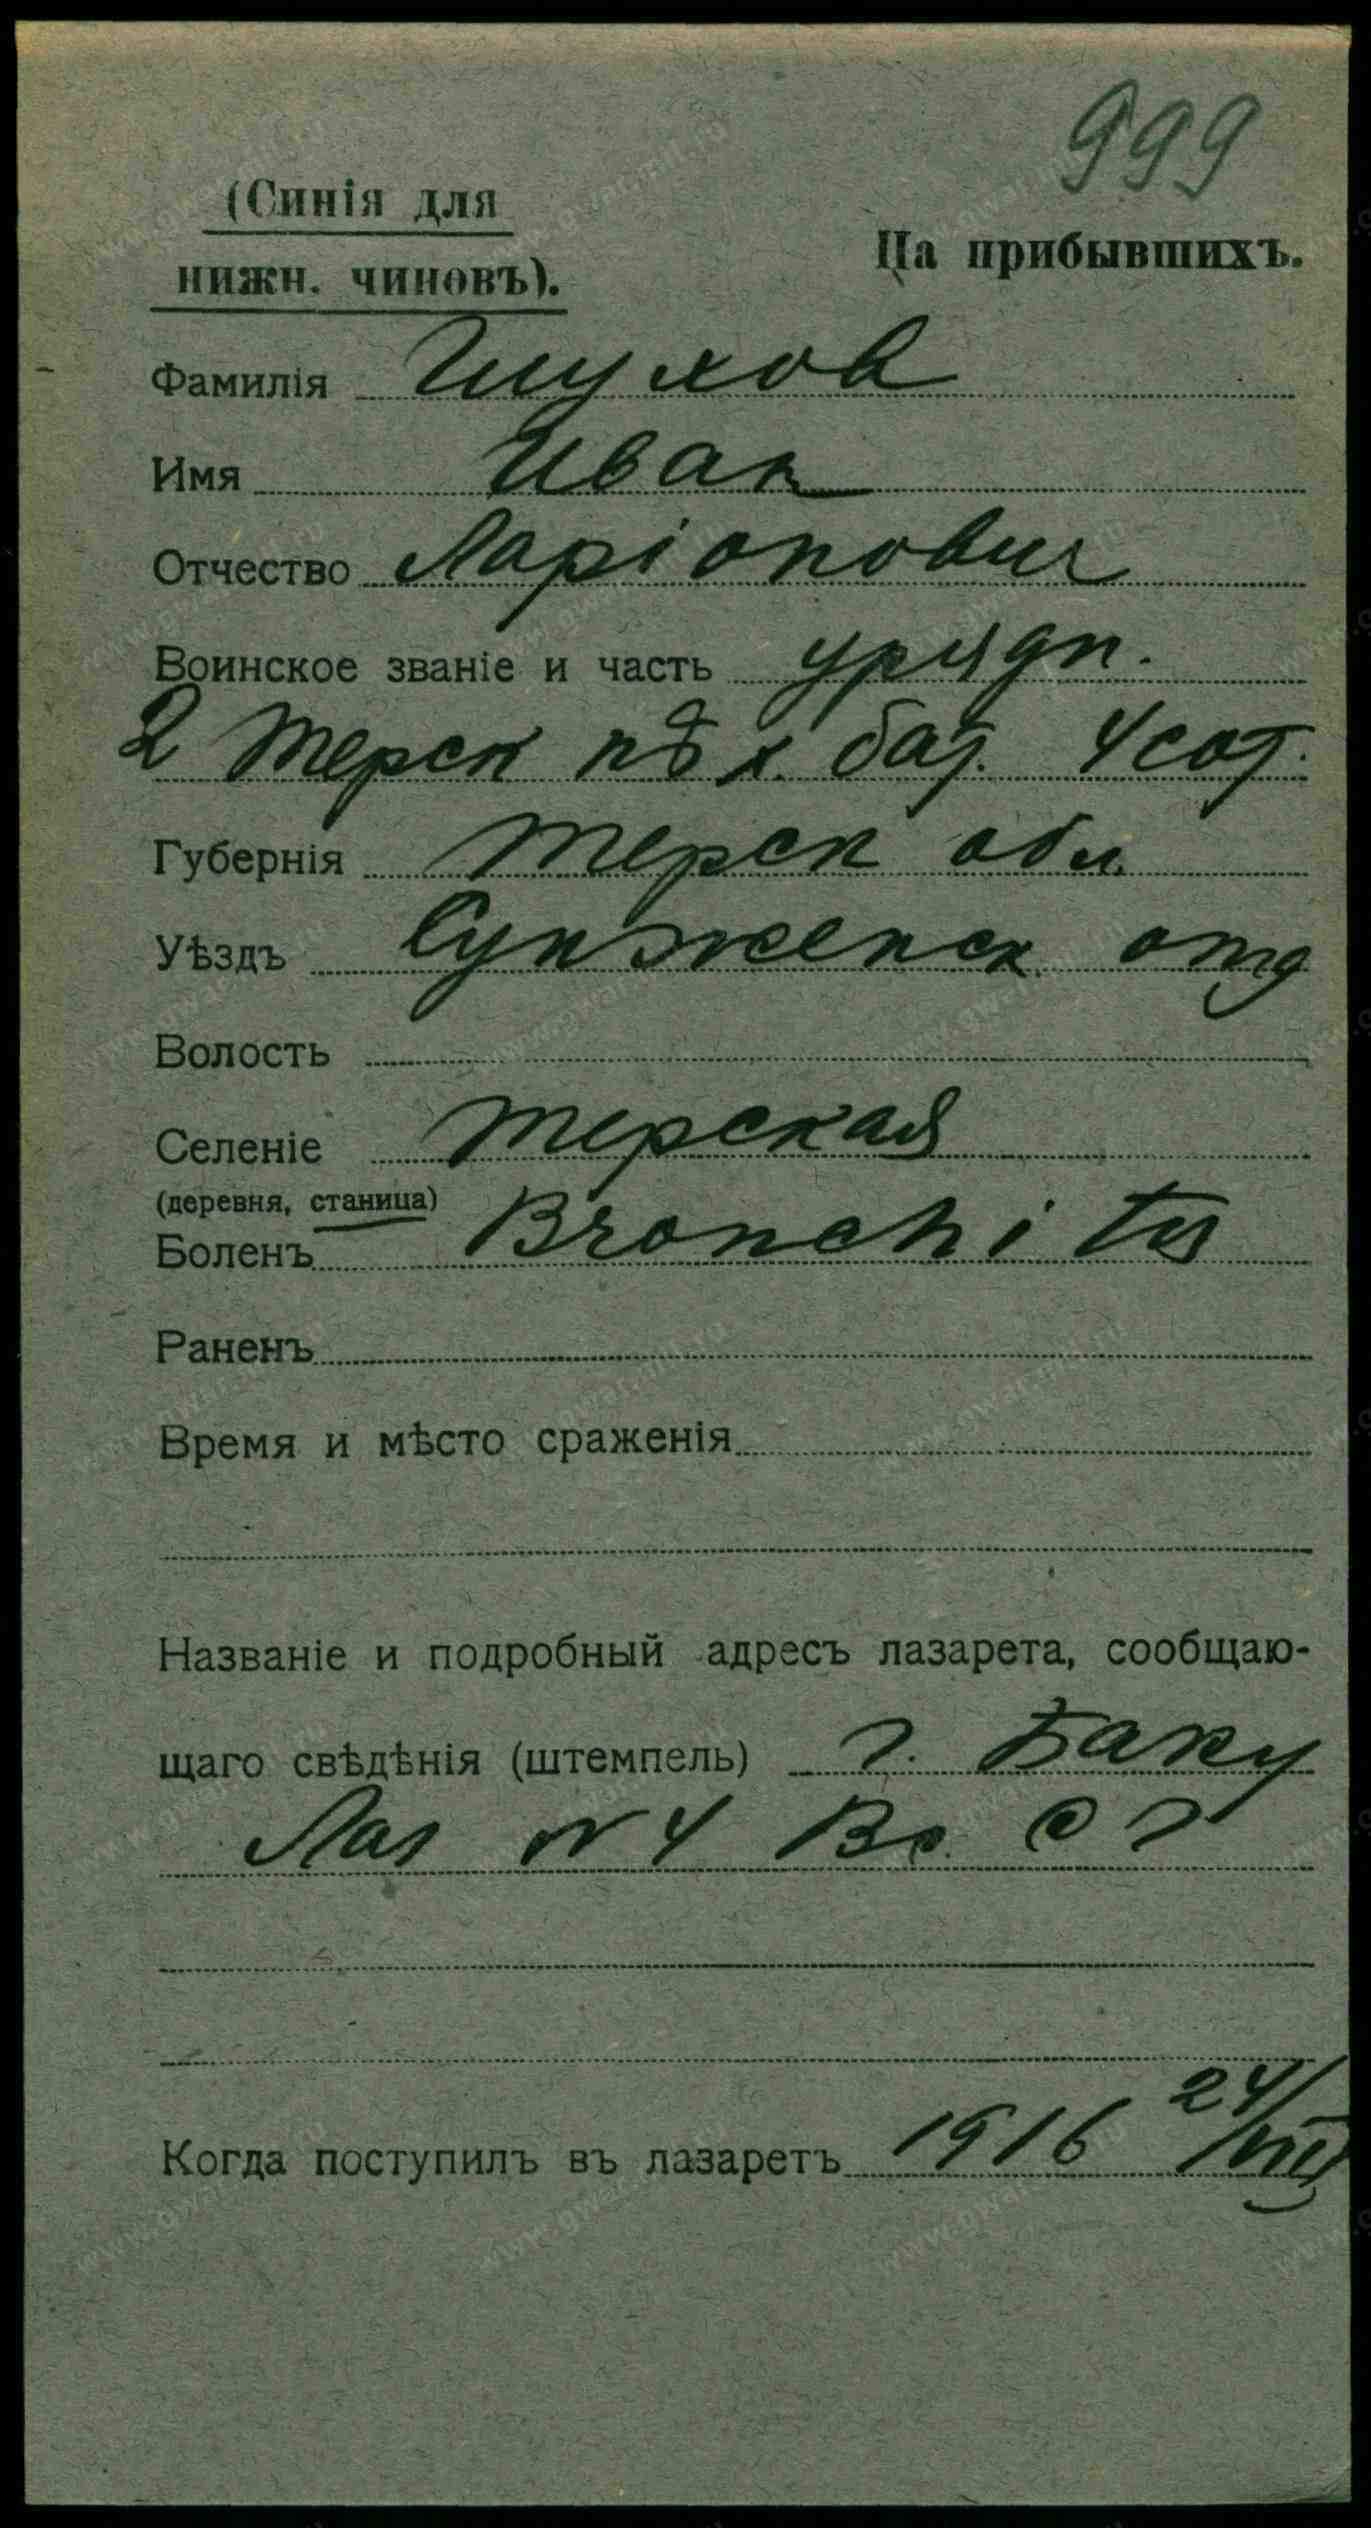 999
(Синія для
нижн. чиновъ).
На прибывшихъ.
Фамилія Глухов
Имя Иван
Отчество Ларіонович
Воинское званіе и часть урядн.
2 Терск бат. 4 сот.
Губернія Терск обл.
Уѣздъ Сунженск отд
Волость
Селеніе Терская
(деревня, станица)
Боленъ Bronchitis
Раненъ
Время и мѣсто сраженія
Названіе и подробный адресъ лазарета, сообщаю-
щаго свѣдѣнія (штемпель) г. Баку
Лаз № 4 Вс. С Г
Когда поступилъ въ лазаретъ 1916 24/VIII